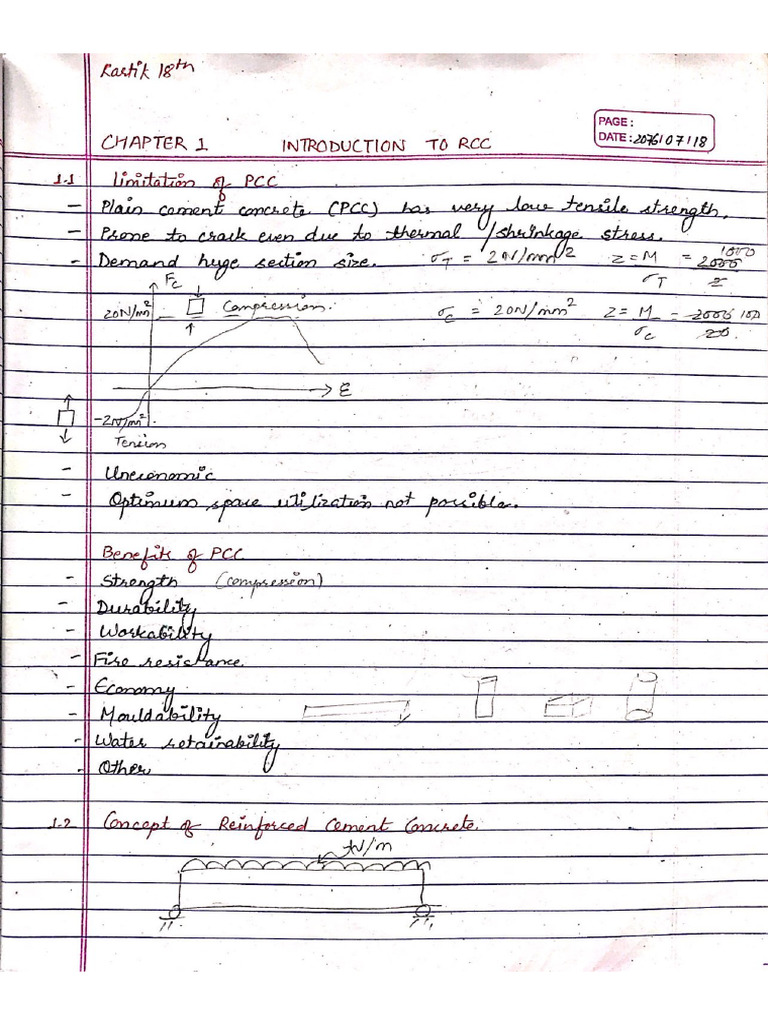 Kartik 18th
PAGE:
DATE: 2076/07/18
CHAPTER 1 INTRODUCTION TO RCC
1.1 Limitation of PCC
- Plain cement concrete (PCC) has very low tensile strength.
- Prone to crack even due to thermal /shrinkage stress.
- Demand huge section size. σT = 2N/mm2 Z=M/σT = 2000/2 1000
Fc
20N/mm2 Compression. σc = 20N/mm2 Z=M/σc = 2000/20 100
ε
-2N/mm2
Tension
- Uneconomic
- Optimum space utilization not possible.
Benefits of PCC
- Strength (compression)
- Durability
- Workability
- Fire resistance
- Economy
- Mouldability
- Water retainability
- Other
1.2 Concept of Reinforced Cement Concrete.
/m